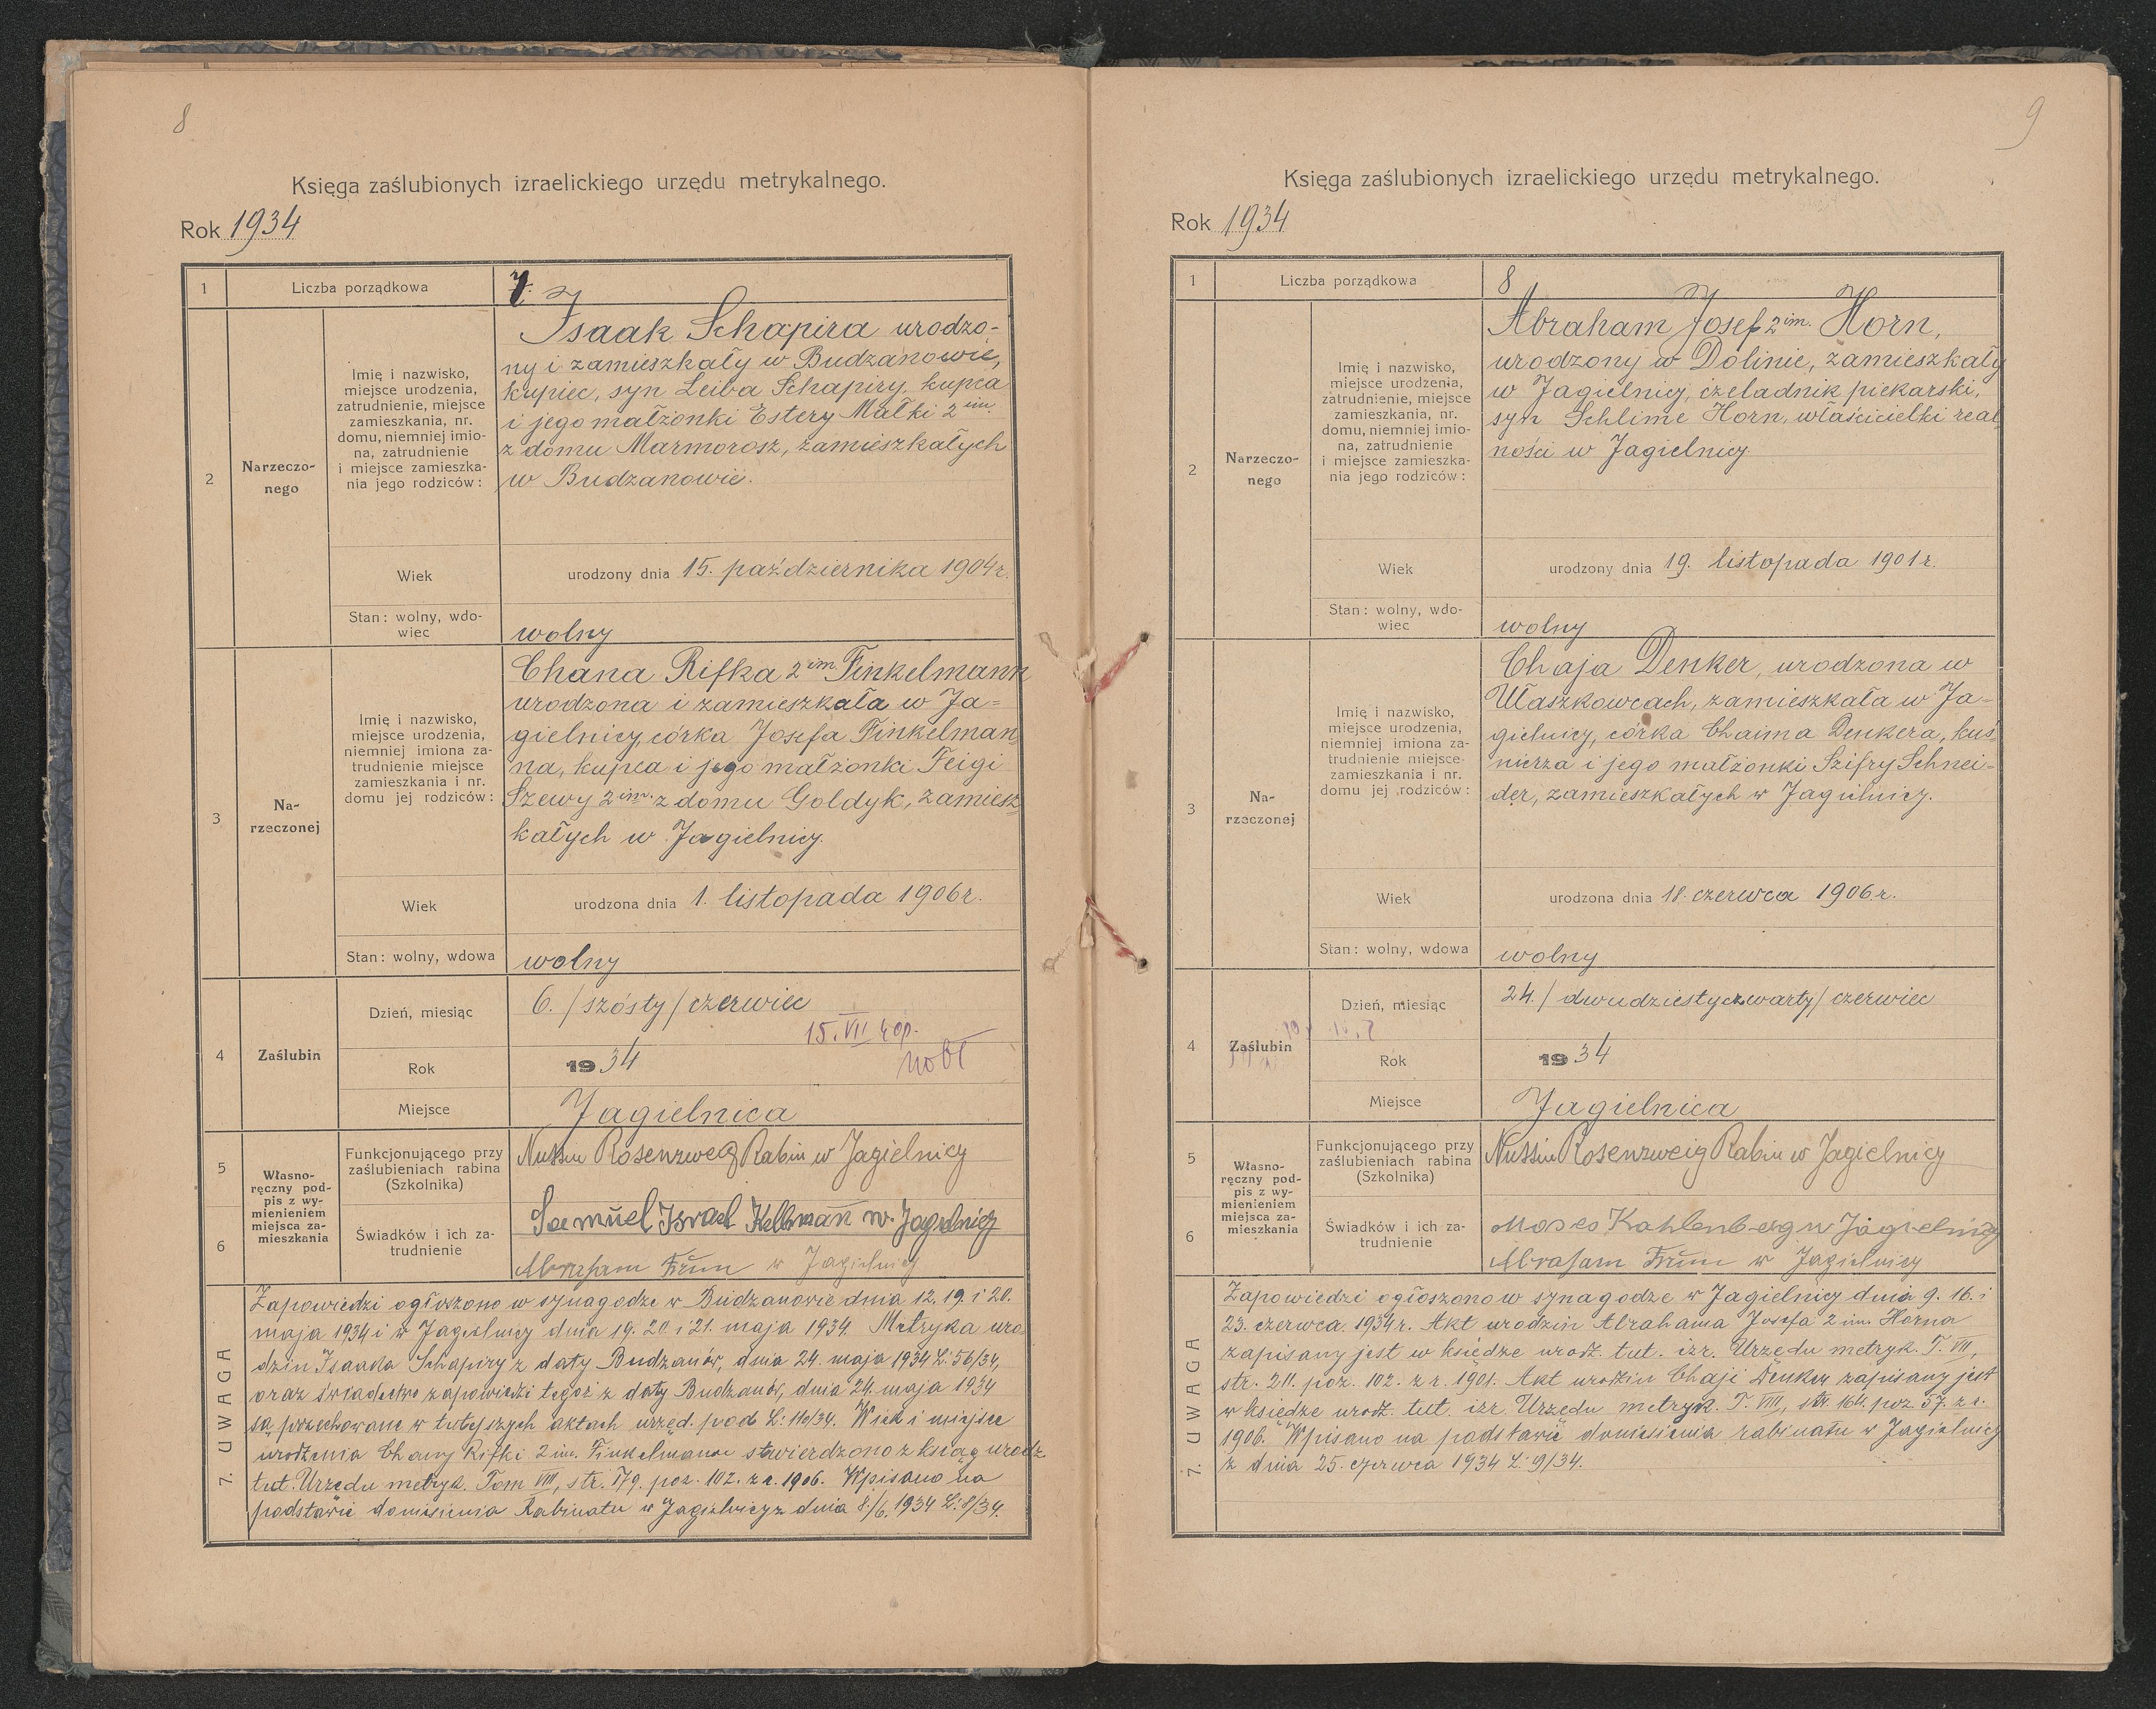 8
Księga zaślubionych izraelickiego urzędu metrykalnego.
Rok 1934
1 Liczba porządkowa 7.
2 Narzeczo-
nego
Imię i nazwisko,
miejsce urodzenia,
zatrudnienie, miejsce
zamieszkania, nr.
domu, niemniej imio-
na, zatrudnienie
i miejsce zamieszka-
nia jego rodziców:
Isaak Schapira urodzo-
ny i zamieszkały w Budzanowie,
kupiec, syn Leiba Schapiry, kupca
i jego małżonki Estery Małki 2 im.
z domu Marmorosz, zamieszkałych
w Budzanowie.
Wiek urodzony dnia 15. października 1904 r.
Stan: wolny, wdo-
wiec
wolny
3 Na-
rzeczonej
Imię i nazwisko,
miejsce urodzenia,
niemniej imiona za-
trudnienie miejsce
zamieszkania i nr.
domu jej rodziców:
Chana Rifka 2 im. Finkelmann
urodzona i zamieszkała w Ja=
gielnicy, córka Josefa Finkelman=
na, kupca i jego małżonki Feigi
Szewy 2 im. z domu Goldyk, zamiesz=
kałych w Jagielnicy.
Wiek urodzona dnia 1. listopada 1906 r.
Stan: wolny, wdowa wolny
4 Zaślubin
Dzień, miesiąc 6. /szósty/ czerwiec
15. VII
Rok 1934
Miejsce Jagielnica
5
6
Własno-
ręczny pod-
pis z wy-
mienieniem
miejsca za-
mieszkania
Funkcjonującego przy
zaślubieniach rabina
(Szkolnika)
Nussin Rosenzweig Rabin w Jagielnicy
Świadków i ich za-
trudnienie
Samuel Israel Kellmann w. Jagielnicy
Abraham w Jagielnicy
7. UWAGA
Zapowiedzi ogłoszono w synagodze w Budzanowie dnia 12. 19. i 20.
maja 1934 i w Jagielnicy dnia 19. 20. i 21. maja 1934. Metryka uro
dzin Isaaka Schapiry z daty Budzanów, dnia 24. maja 1934 L: 56/34,
oraz świadectwo zapowiedzi tegoż z daty Budzanów, dnia 24. maja 1934
są przechowane w tutejszych aktach urzęd. pod L: 110/34. Wiek i miejsce
urodzenia Chany Rifki 2 im. Finkelmann stwierdzono z ksiąg urodz.
tut. Urzędu metryk. Tom VIII, str. 179. poz. 102. z r. 1906. Wpisano na
podstawie doniesienia Rabinatu w Jagielnicy z dnia 8./6. 1934 L: 8/34.
9
Księga zaślubionych izraelickiego urzędu metrykalnego.
Rok 1934
1 Liczba porządkowa 8
2 Narzeczo-
nego
Imię i nazwisko,
miejsce urodzenia,
zatrudnienie, miejsce
zamieszkania, nr.
domu, niemniej imio-
na, zatrudnienie
i miejsce zamieszka-
nia jego rodziców:
Abraham Josef 2 im. Horn,
urodzony w Dolinie, zamieszkały
w Jagielnicy, czeladnik piekarski,
syn Schlime Horn, właścicielki real
ności w Jagielnicy.
Wiek urodzony dnia 19. listopada 1901 r.
Stan: wolny, wdo-
wiec
wolny
3 Na-
rzeczonej
Imię i nazwisko,
miejsce urodzenia,
niemniej imiona za-
trudnienie miejsce
zamieszkania i nr.
domu jej rodziców:
Chaja Denker, urodzona w
Ułaszkowcach, zamieszkała w Ja-
gielnicy, córka Chaima Denkera, kuś-
nierza i jego małżonki Szifry Schnei-
der, zamieszkałych w Jagielnicy.
Wiek urodzona dnia 18. czerwca 1906 r.
Stan: wolny, wdowa wolny
4 Zaślubin
Dzień, miesiąc 24. / dwudziestyczwarty/ czerwiec
Rok 1934
Miejsce Jagielnica
5
6
Własno-
ręczny pod-
pis z wy-
mienieniem
miejsca za-
mieszkania
Funkcjonującego przy
zaślubieniach rabina
(Szkolnika)
Nussin Rosenzweig Rabin w Jagielnicy
Świadków i ich za-
trudnienie
Moses Kahlenberg w Jagielnicy
Abraham w Jagielnicy
7. UWAGA
Zapowiedzi ogłoszono w synagodze w Jagielnicy dnia 9. 16. i
23. czerwca 1934 r. Akt urodzin Abrahama Josefa 2 im. Horna
zapisany jest w księdze urodz. tut. izr. Urzędu metryk. T. VII,
str. 211. poz. 102. z r. 1901. Akt urodzin Chaji Denker zapisany jest
w księdze urodz. tut. izr. Urzędu metryk. T. VIII, str. 164. poz. 57. z r.
1906. Wpisano na podstawie doniesienia rabinatu w Jagielnicy
z dnia 25. czerwca 1934 L: 9/34.